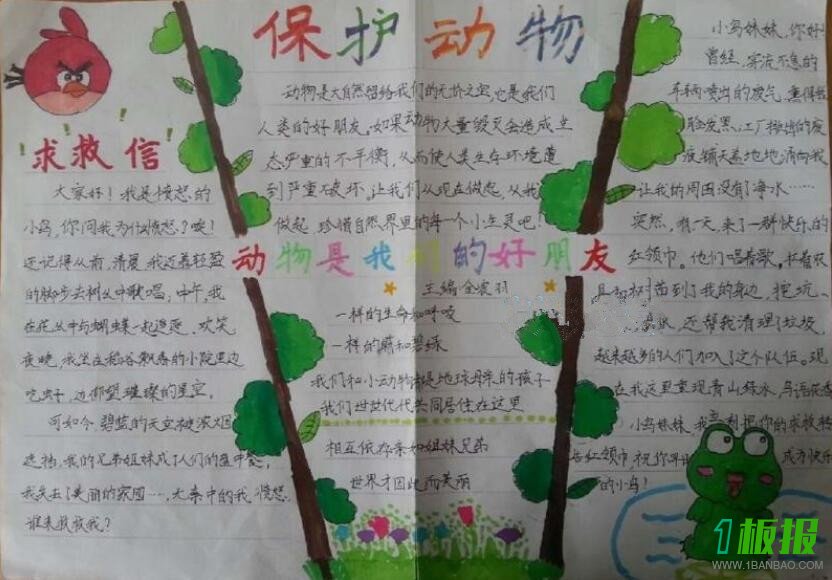 保护动物
动物是大自然留给我们的无价之宝,它是我们
人类的好朋友,如果动物大量毁灭会造成生
态严重的不平衡,从而使人类生存环境遭
到严重破坏。让我们从现在做起,从我
做起,珍惜自然界里的每一个小生灵吧!
求救信
大家好!我是愤怒的
小鸟,你问我为什么愤怒?唉!
还记得从前,清晨,我迈着轻盈
的脚步去树丛中歌唱,中午,我
在花丛中与蝴蝶一起追逐,欢笑
夜晚,我坐在稻谷飘香的小院里边
吃虫子,边仰望璀璨的星空。
可如今,碧蓝的天空被浓烟
遮挡,我的兄弟姐妹成了人们的盘中餐,
我失去了美丽的家园……,大家中的我愤怒
谁来救救我?
动物是我们的好朋友
主编
一样的生命和呼吸
一样的
我们和小动物都是地球母亲的孩子
我们世世代代共同居住在这里
相互依存亲如姐妹兄弟
世界才因此而美丽
小鸟妹妹,你好!
曾经,穿流不息的
车辆喷出的废气,熏得我
脸发黑。工厂排出的废
液铺天盖地地涌向我
让我的周围没有了海水……
突然,有一天,来了一群快乐的
红领巾。他们唱着歌,扛着农
具和树苗到了我的身边,挖坑、
还帮我清理了垃圾,
越来越多的人们加入了这个队伍。现
在我这里重现青山绿水,鸟语花香
小鸟妹妹,我把你的求救转
给红领巾,祝你早日成为快乐
的小鸟!
1板报
WWW.1BANBAO.COM